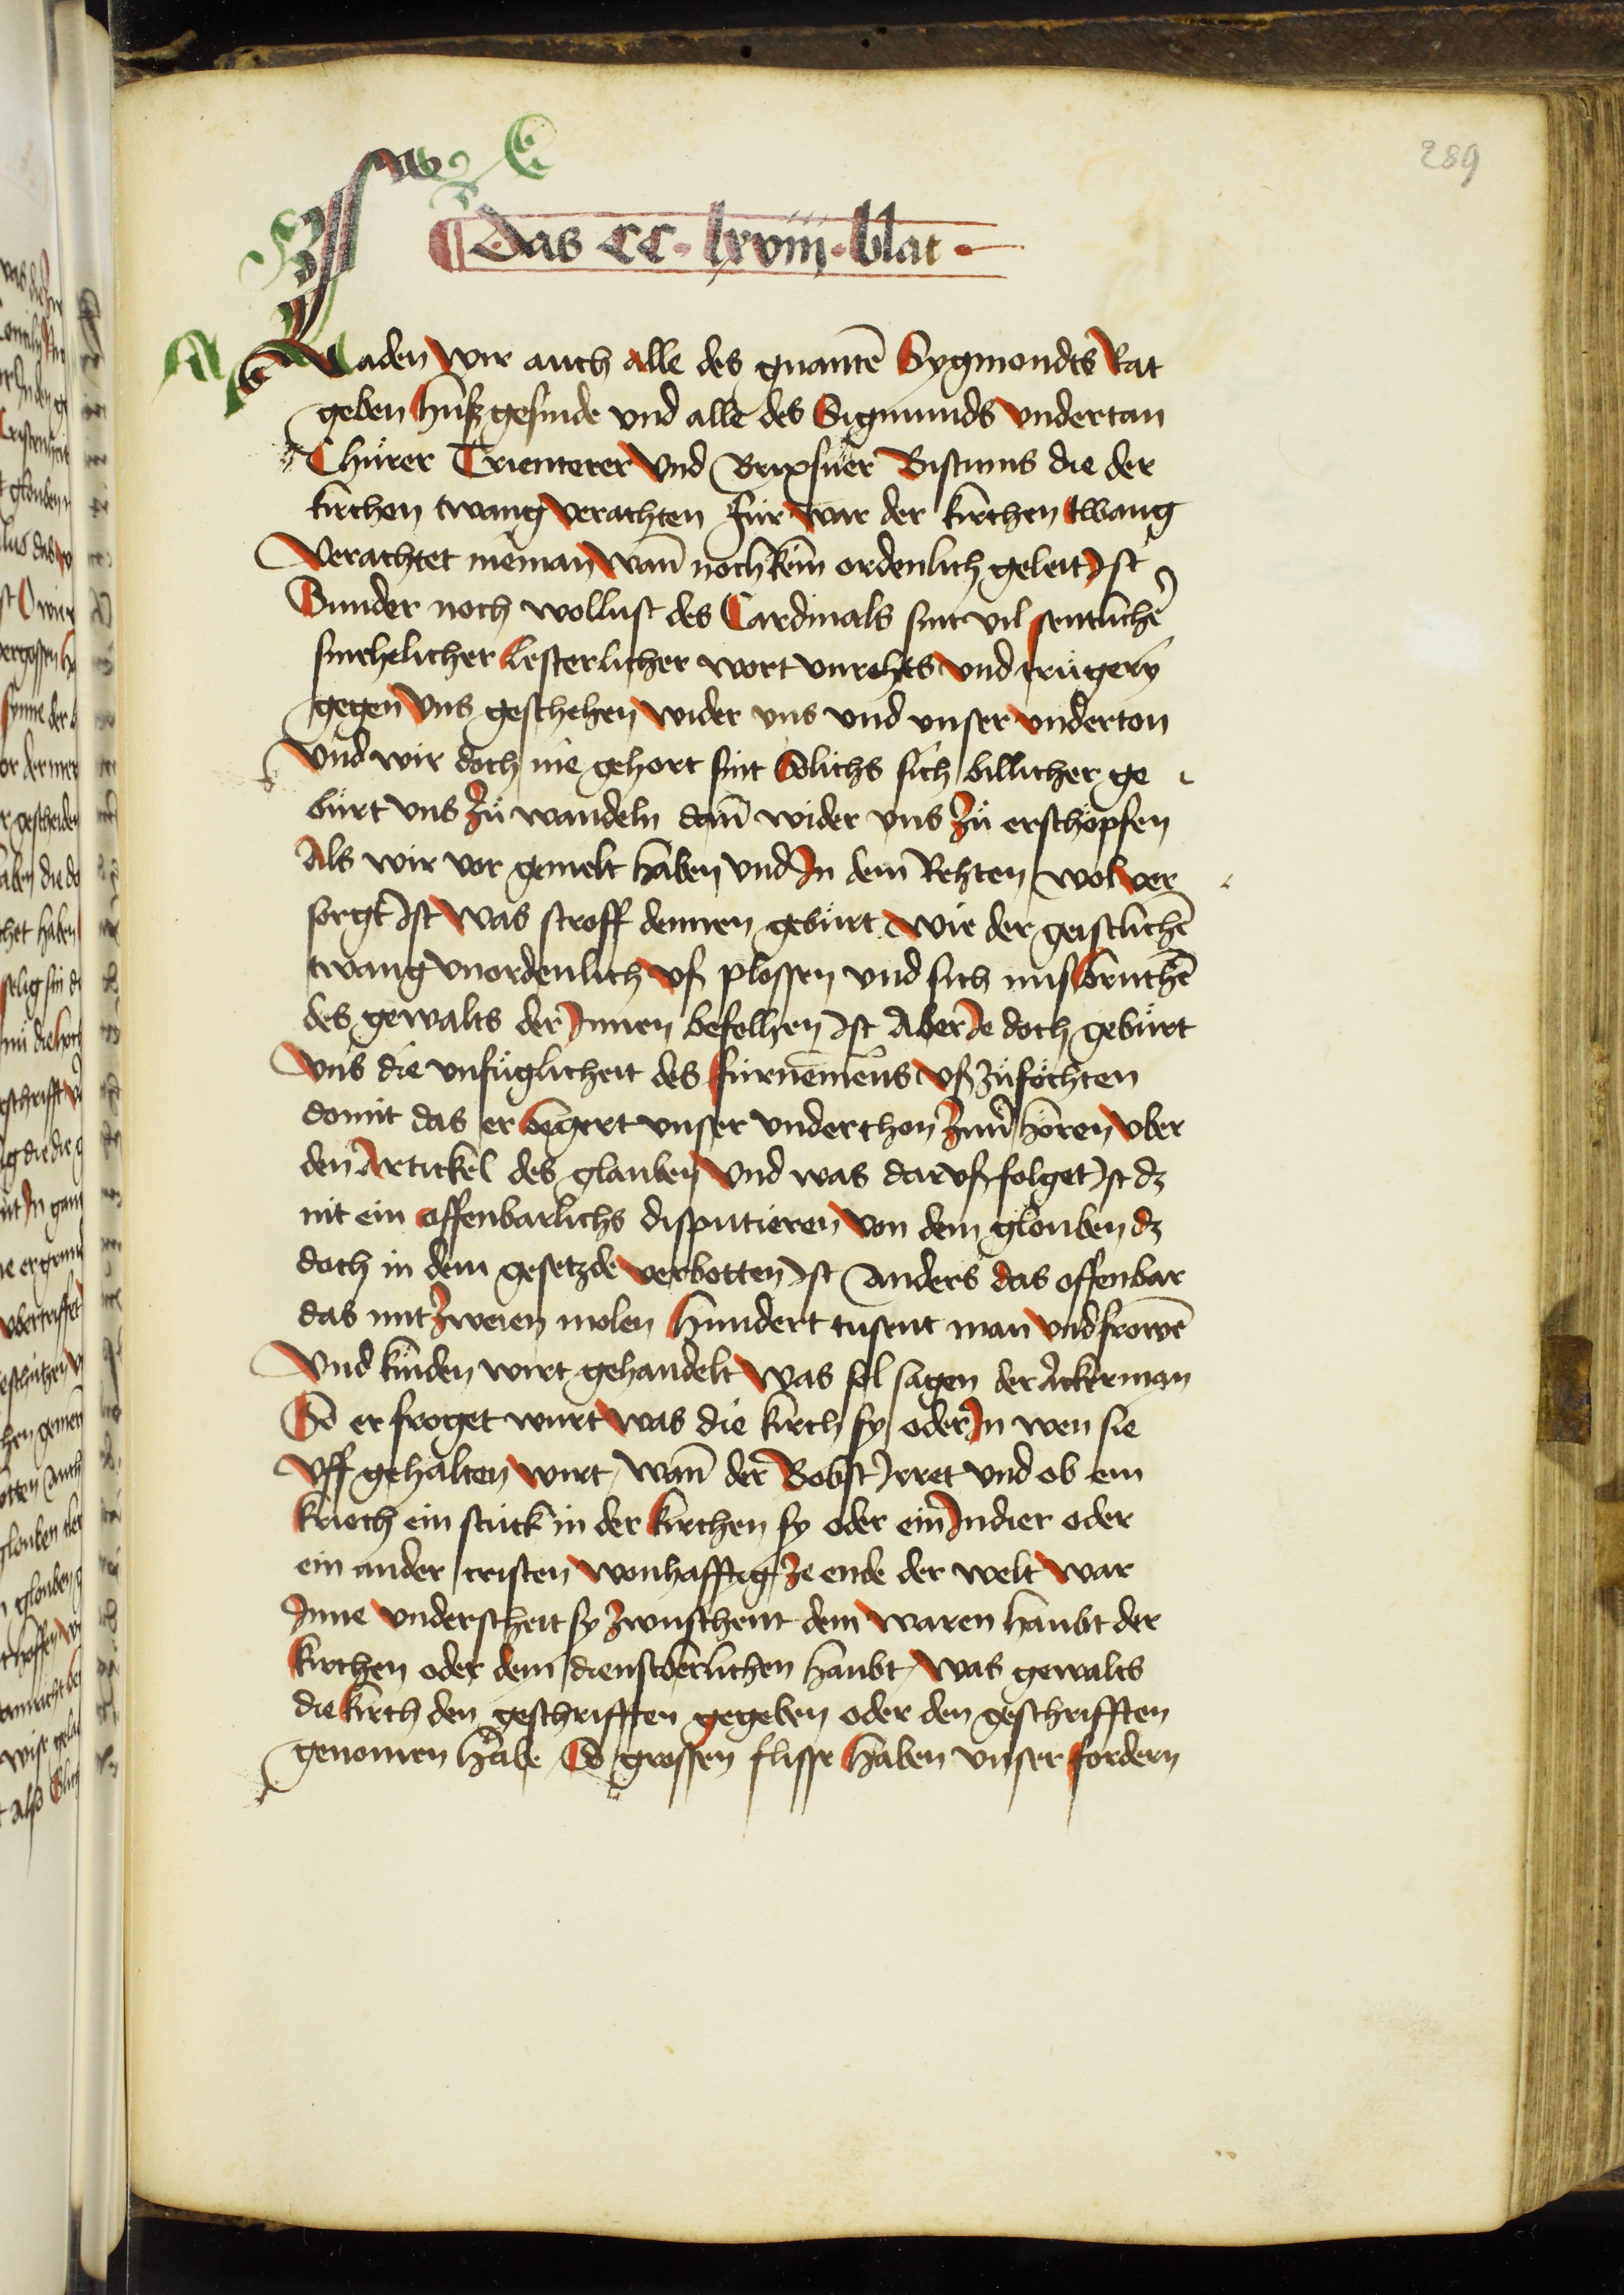 289
Das CC. lxviij. blat
Laden wir auch alle des gnantē Sygmondts Rat
geben husz gesinde vnd alle des Sigmunds vndertan
Chürer Trienterer vnd Brixsner Bistums die der
kirchen twang verachten für war der kirchen twang
verachtet nieman wan̄ noch kein ordenlich geleit Ist
Sunder noch wollust des Cardinals sint vil sentlichē
smehelicher lesterlicher wort vnrehts vnd trügery
gegen vns geschehen wider vns vnd vnser vnderton
vnd wir doch nie gehort sint Solichs sich billicher ge
bürt vns zü wandeln dan̄ wider vns zü erschöpfen
Als wir vor gemelt haben vnd In dem Rehten wol ver
sorgt Ist was stroff dennen gebürt wie der geistlichē
twang vnordenlich vsz plossen vnd sich misbruchē
des gewalts der Innen befolhen Ist Aber Je doch gebürt
vns die vnfüglicheit des fürnemens vsz zü föchten
domit das er begert vnser vnderthon zum hören vber
den Artickel des glauben vnd was dar vsz folget Ist dz
nit ein offenbarlichs disputieren von dem glouben dz
doch in dem gesetzde verbotten Ist anders das offenbar
das mit zweien molen hundert tusent man vnd frowē
vnd kinden wirt gehandelt was sol sagen der Ackerman
So er froget wurt was die kirch sy oder In wen sie
vff gehalten wirt wan̄ der Bobst Irret vnd ob ein
kriech ein stuck in der kirchen sy oder ein Indier oder
ein ander cristen wonhafftig ze ende der welt war
Inne vnderscheit sy zwuschent dem waren haubt der
kirchen oder dem dienstberlichen haubt was gewalts
die kirch den geschrifften gegeben oder den geschrifften
genomen habe So grossen flisse haben vnser fordern